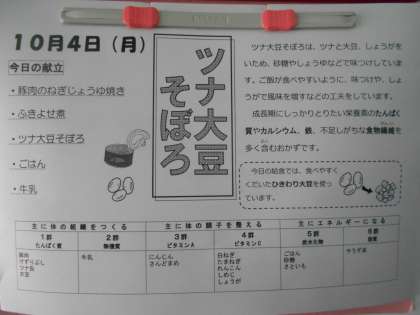 10月4日(月)
今日の献立
・豚肉のねぎじょうゆ焼き
・ふきよせ煮
・ツナ大豆そぼろ
・ごはん
・牛乳
ツナ大豆
そぼろ
ツナ大豆そぼろは、ツナと大豆、しょうがを
いため、砂糖やしょうゆなどで味つけしていま
す。ご飯が食べやすいように、味つけや、しょ
うがで風味を増すなどの工夫をしています。
成長期にしっかりとりたい栄養素のたんぱく
質やカルシウム、鉄、不足しがちな食物繊維を
多く含むおかずです。
今日の給食では、食べやすく
くだいたひきわり大豆を使っ
ています。
主に体の組織をつくる 主に体の調子を整える 主にエネルギーになる
1群 2群 3群 4群 5群 6群
たんぱく質 無機質 ビタミンA ビタミンC 炭水化物 脂質
豚肉 牛乳 にんじん 白ねぎ ごはん
さんどまめ たまねぎ 砂糖
ツナ缶 れんこん さといも
大豆 しめじ
しょうが